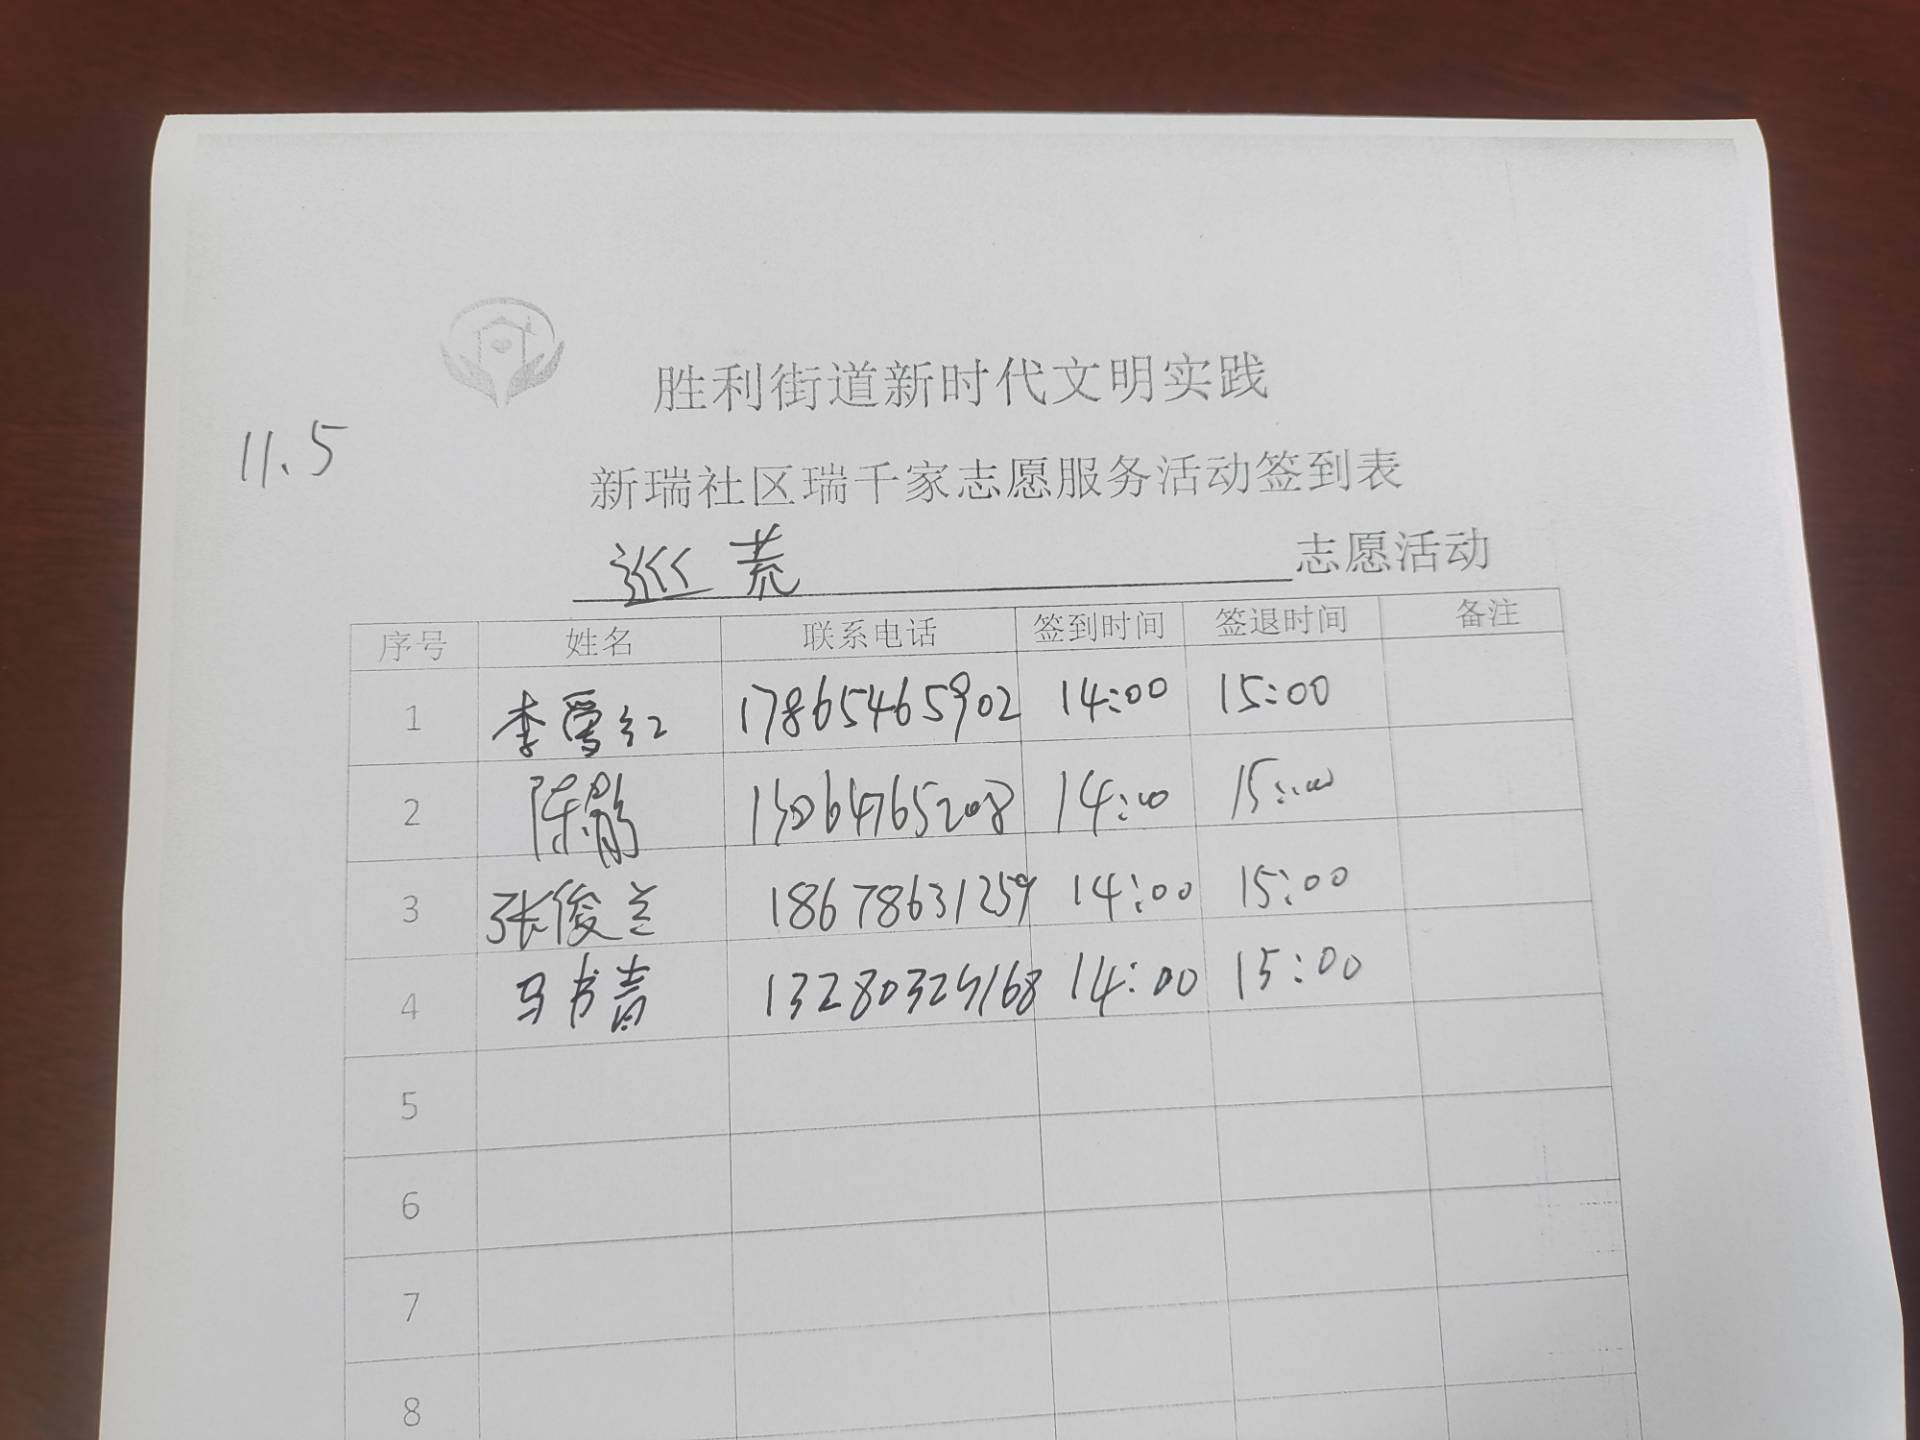 胜利街道新时代文明实践
11.5
新瑞社区瑞千家志愿服务活动签到表
巡荒 志愿活动
序号 姓名 联系电话 签到时间 签退时间 备注
1 李 红 17865465902 14:00 15:00
2 陈 13064765208 14:00 15:00
3 张俊兰 18678631259 14:00 15:00
4 马书 14:00 15:00
5
6
7
8